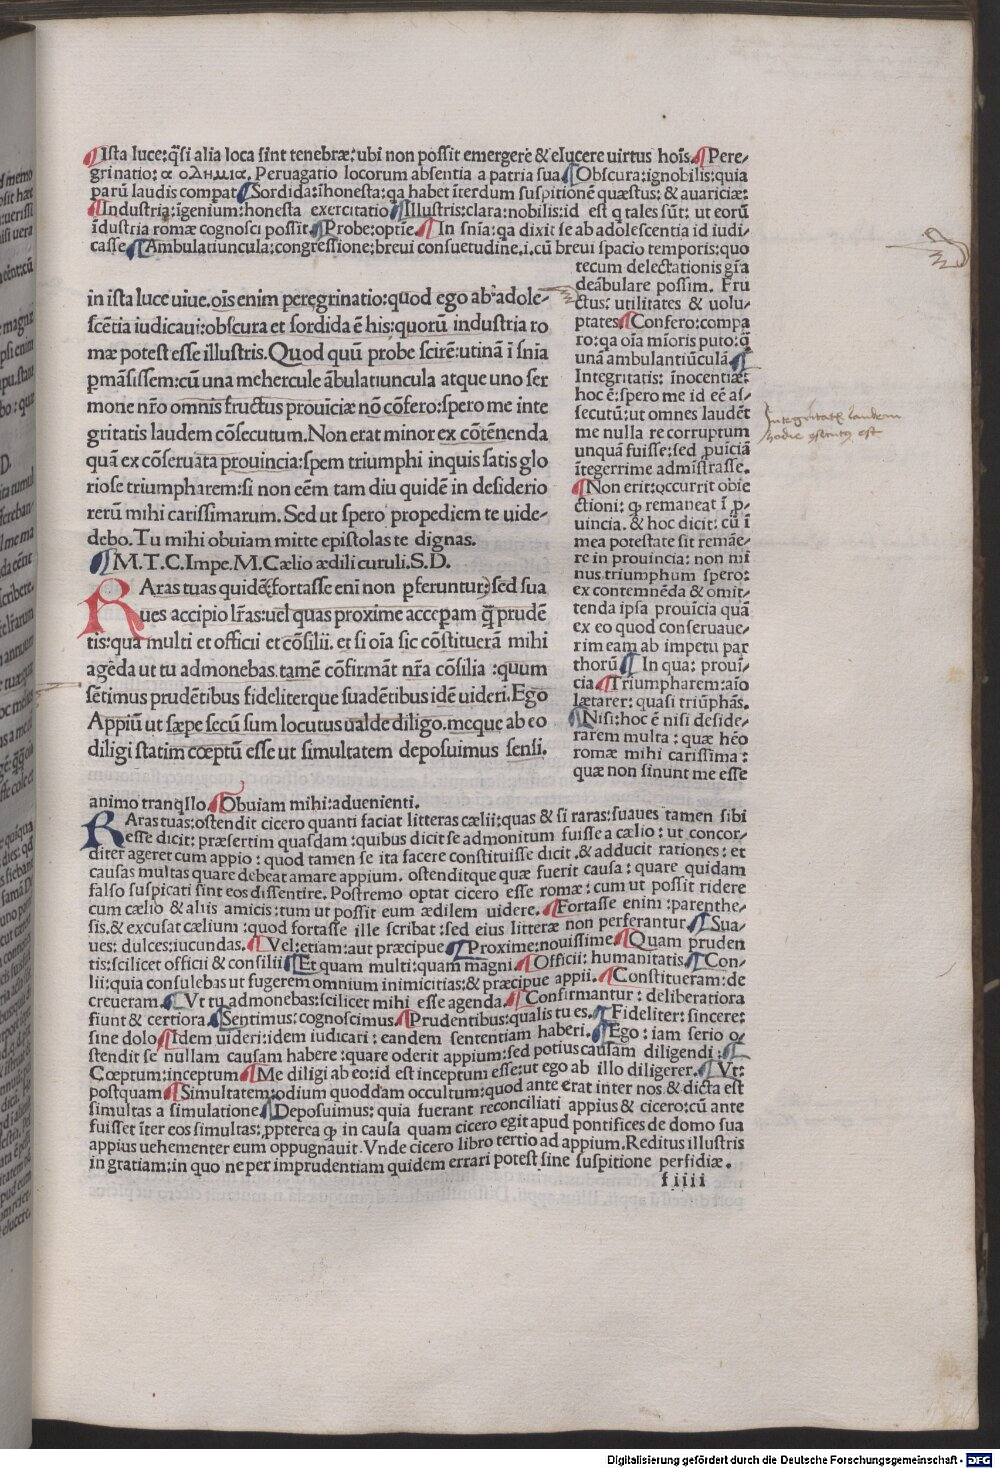 ¶Ista luce:q̃si alia loca sint tenebræ:ubi non possit emergere & elucere uirtus hoīs.¶Pere-
grinatio: Peruagatio locorum absentia a patria sua ¶Obscura:ignobilis:quia
parū laudis compat ¶Sordida:īhonesta:qa habet īterdum suspitionē quæstus: & auariciæ:
¶Industria:īgenium:honesta exercitatio ¶Illustris:clara:nobilis:id est q tales sūt: ut eorū
īdustria romæ cognosci possit ¶Probe:optīe ¶In snīa:qa dixit se ab adolescentia id iudi-
casse ¶Ambulatiuncula:congressione:breui consuetudine.i.cū breui spacio temporis:quo
tecum delectationis gīa
deābulare possim. Fru
ctus: utilitates & uolu-
ptates ¶Confero:compa
ro:qa oīa mīoris puto:q̄
unā ambulantiūculā ¶
Integritatis: īnocentiæ:
hoc ē:spero me id eē as-
secutū:ut omnes laudēt
me nulla re corruptum
unquā fuisse:sed ꝓuīciā
ītegerrime admīstrasse.
¶Non erit:occurrit obie
ctioni: ꝙ remaneat ī ꝓ-
uincia. & hoc dicit: cū ī
mea potestate sit remāe-
re in prouincia: non mi
nus triumphum spero:
ex contemnēda & omit-
tenda ipsa prouīcia quā
ex eo quod conseruaue-
rim eam ab impetu par
thorū ¶ In qua: prouī-
cia ¶Triumpharem:aīo
lætarer: quasi triūphās.
¶Nisi:hoc ē nisi deside-
rarem multa: quæ hēo
romæ mihi carissima:
quæ non sinunt me esse
in ista luce uiue.oīs enim peregrinatio:quod ego ab adole-
scētia iudicaui:obscura et sordida ē his:quorū industria ro
mæ potest esse illustris.Quod quū probe scirē:utinā ī snīa
ꝑmāsissem:cū una mehercule ābulatiuncula atque uno ser
mone nr̄o omnis fructus prouīciæ nō cōfero:spero me inte
gritatis laudem cōsecutum.Non erat minor ex cōtēnenda
quā ex cōseruata prouincia:spem triumphi inquis satis glo
riose triumpharem:si non eēm tam diu quidē in desiderio
rerū mihi carissimarum. Sed ut spero propediem te uide-
debo.Tu mihi obuiam mitte epistolas te dignas.
¶M.T.C.Impe.M.Cælio ædili curuli.S.D.
RAras tuas quidē(fortasse enī non ꝑferuntur)sed sua
ues accipio lr̄as:uel quas proxime accepam q̄ prudē
tis:qua multi et officii et cōsilii. et si oīa sic cōstituerā mihi
agēda ut tu admonebas.tamē cōfirmāt nr̄a cōsilia :quum
sētimus prudētibus fideliterque suadētibus idē uideri.Ego
Appiū ut sæpe secū sum locutus ualde diligo.meque ab eo
diligi statim cœptū esse ut simultatem deposuimus sensi.
animo tranqllo.¶Obuiam mihi:aduenienti.
RAras tuas:ostendit cicero quanti faciat litteras cælii:quas & si raras:suaues tamen sibi
esse dicit: præsertim quasdam :quibus dicit se admonitum fuisse a cælio: ut concor-
diter ageret cum appio: quod tamen se ita facere constituisse dicit .& adducit rationes: et
causas multas quare debeat amare appium. ostenditque quæ fuerit causa: quare quidam
falso suspicati sint eos dissentire. Postremo optat cicero esse romæ: cum ut possit ridere
cum cælio & aliis amicis:tum ut possit eum ædilem uidere. ¶Fortasse enim :parenthe-
sis.& excusat cælium :quod fortasse ille scribat :sed eius litteræ non perferantur ¶Sua-
ues: dulces:iucundas. ¶Vel:etiam:aut præcipue ¶Proxime:nouissime.¶Quam pruden
tis:scilicet officii & consilii ¶Et quam multi:quam magni.¶Officii: humanitatis ¶Con-
lii:quia consulebas ut fugerem omnium inimicitias:& præcipue appii. ¶Constitueram:de
creueram. ¶Vt tu admonebas:scilicet mihi esse agenda.¶Confirmantur: deliberatiora
fiunt & certiora ¶Sentimus:cognoscimus ¶Prudentibus:qualis tu es.¶Fideliter: sincere:
sine dolo ¶Idem uideri:idem iudicari: eandem sententiam haberi. ¶Ego: iam serio o-
stendit se nullam causam habere :quare oderit appium:sed potius causam diligendi: ¶
Cœptum:inceptum ¶Me diligi ab eo:id est inceptum esse:ut ego ab illo diligerer.¶Vt:
postquam ¶Simultatem:odium quoddam occultum:quod ante erat inter nos & dicta est
simultas a simulatione ¶Deposuimus: quia fuerant reconciliati appius & cicero:cū ante
fuisset īter eos simultas:ꝓpterea ꝙ in causa quam cicero egit apud pontifices de domo sua
appius uehementer eum oppugnauit.Vnde cicero libro tertio ad appium.Reditus illustris
in gratiam:in quo ne per imprudentiam quidem errari potest sine suspitione perfidiæ.
f iiii
Integritatis laudem
Digitalisierung gefördert durch die Deutsche Forschungsgemeinschaft - DFG